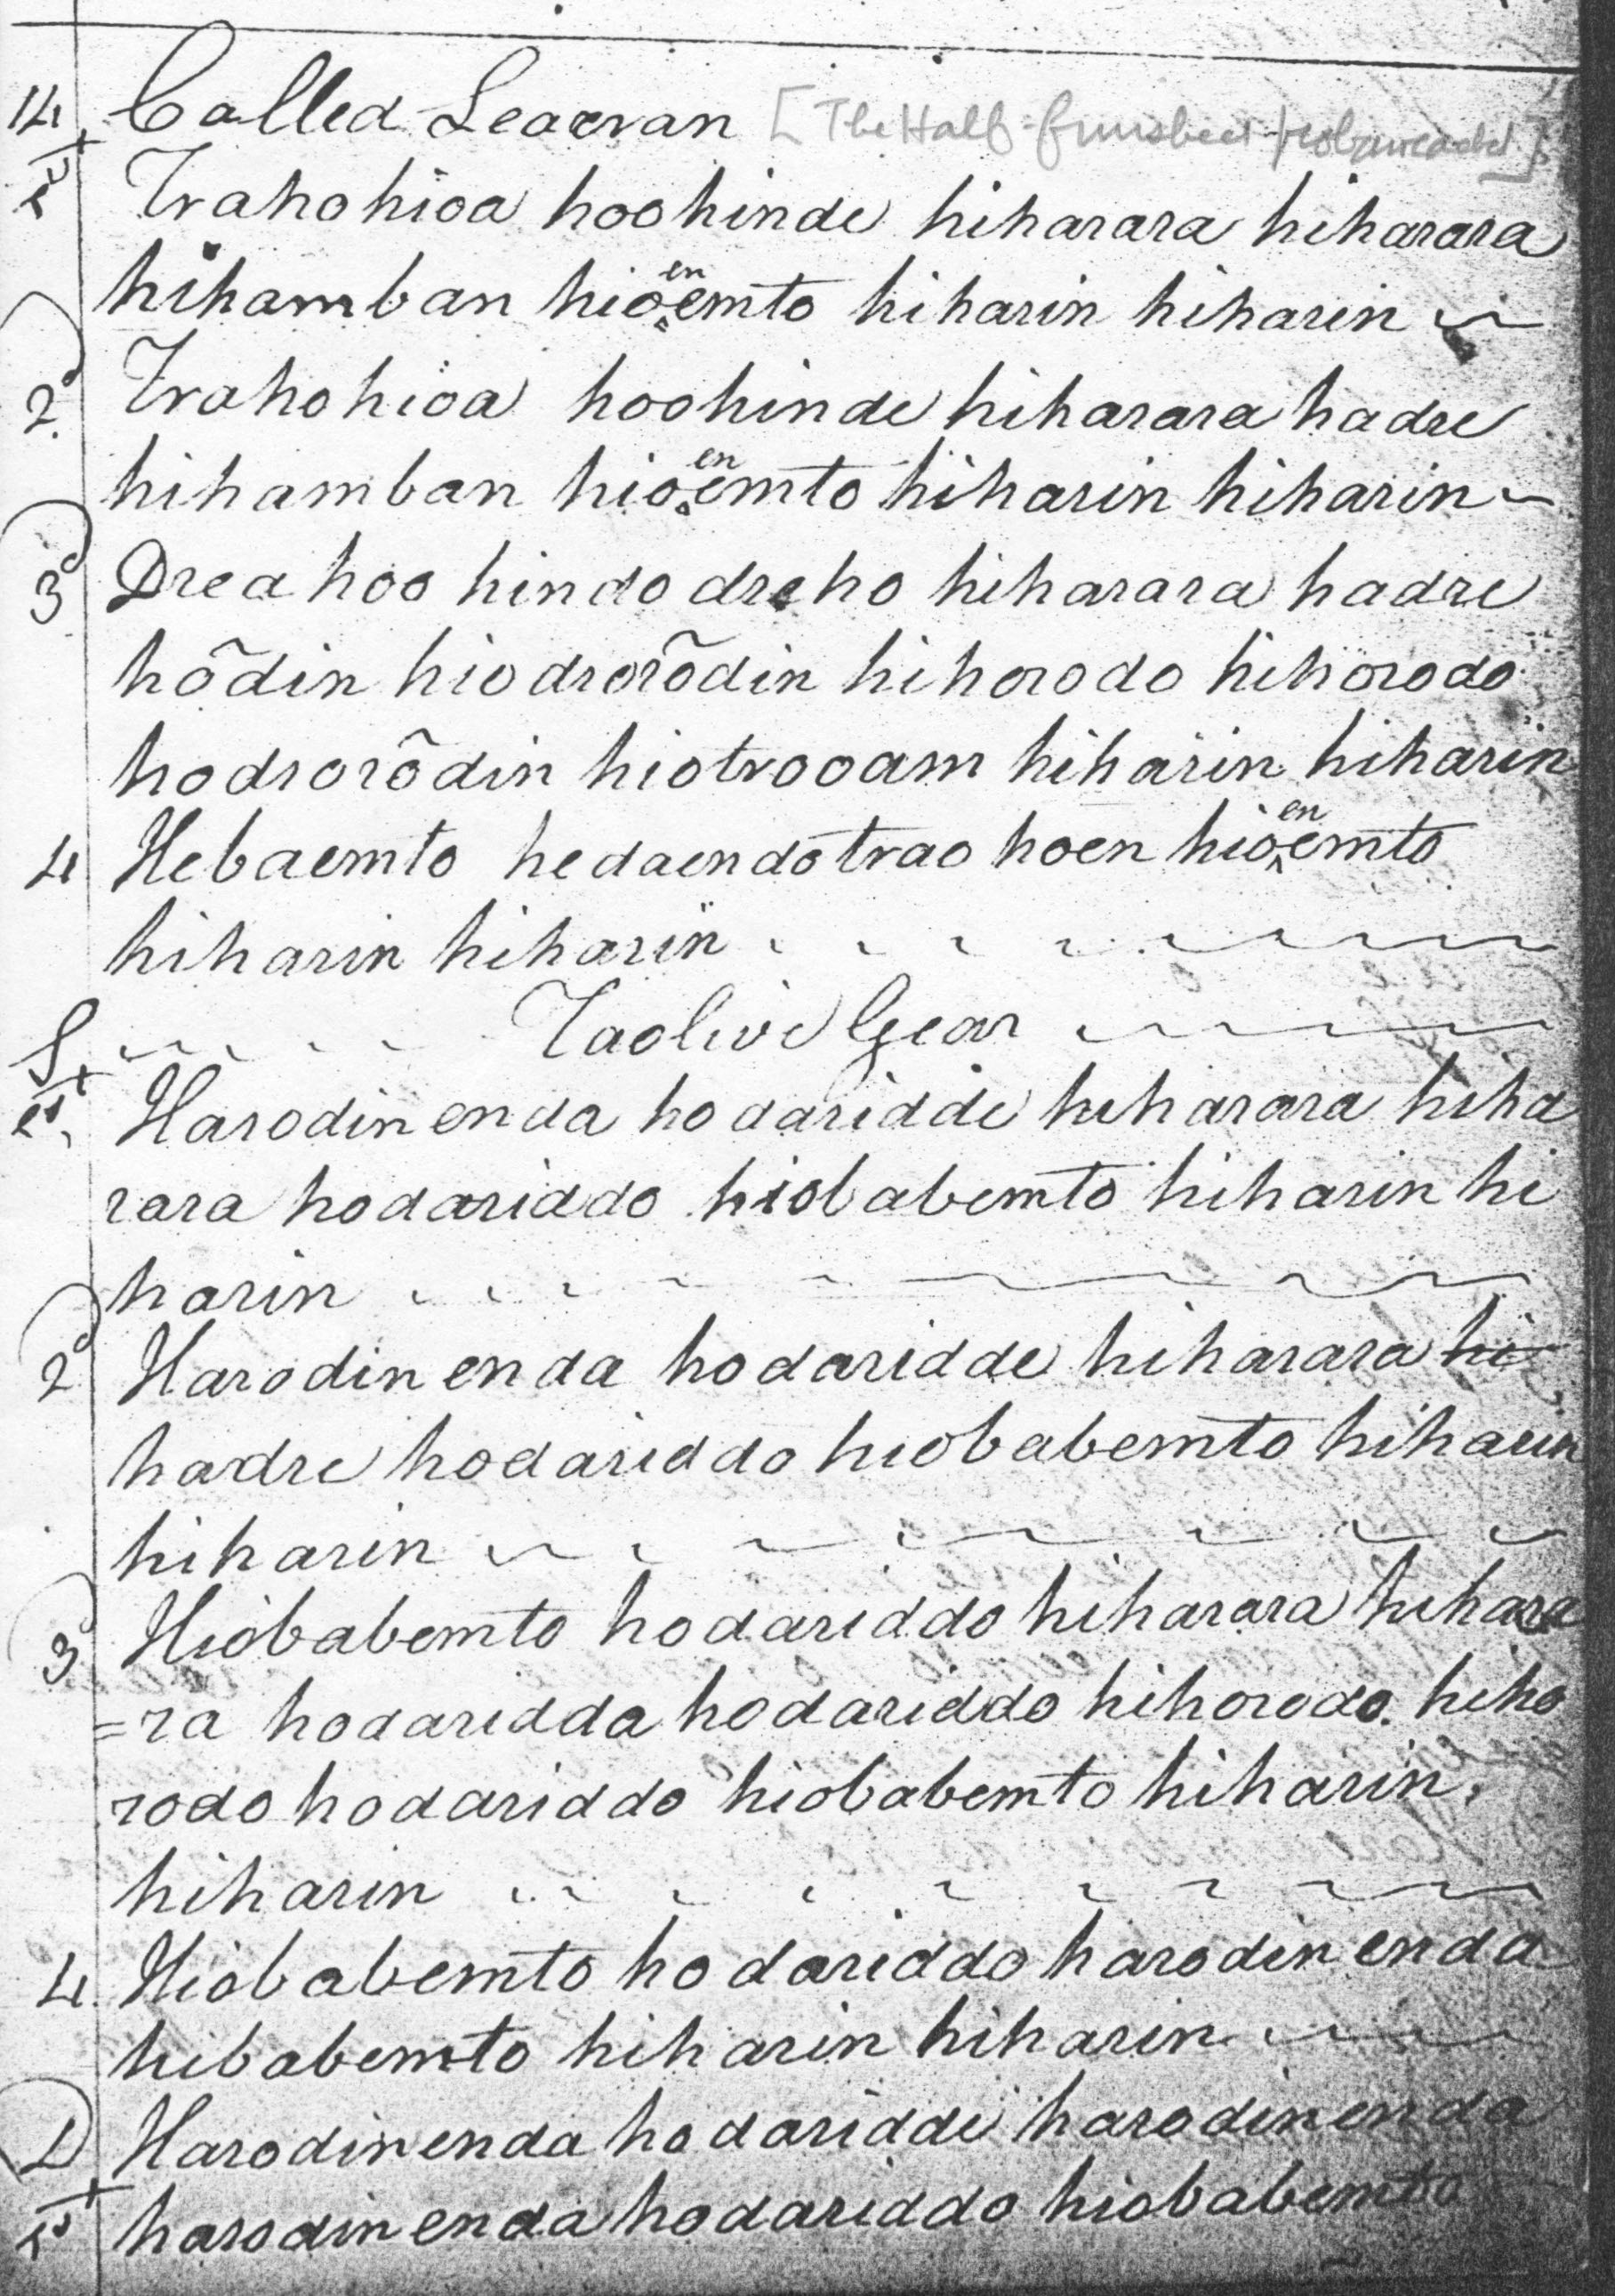 14 Called Leaervan [The Half finished
1st Trahohioa hoohinde hiharara hiharara
hihamban hioenemto hiharin hiharin
2d Trahohioa hoohinde hiharara hadre
hihamban hioenemto hiharin hiharin
3d Drea hoo hindo dreho hiharara hadre
hõdin hiodrorõdin hihorodo hihorodo
hodrorõdin hiotrooam hiharin hiharin
4 Hebaemto hedaendotrao hoen hioenemto
hiharin hiharin
S Taolive Gear
1st Harodin enda hodaridde hiharara hiha
rara hodariddo hiobabemto hiharin hi
harin
2d Harodin enda hodaridde hiharara hi
hadre hodariddo hiobabemto hiharin
hiharin
3d Hiobabemto hodariddo hiharara hihara
=ra hodaridda hodariddo hihorodo. hiho
rodo hodariddo hiobabemto hiharin.
hiharin
4 Hiobabemto hodariddo harodin enda
hibabemto hiharin hiharin
D Harodin enda hodaridde harodin enda
1st harodin enda hodariddo hiobabemto